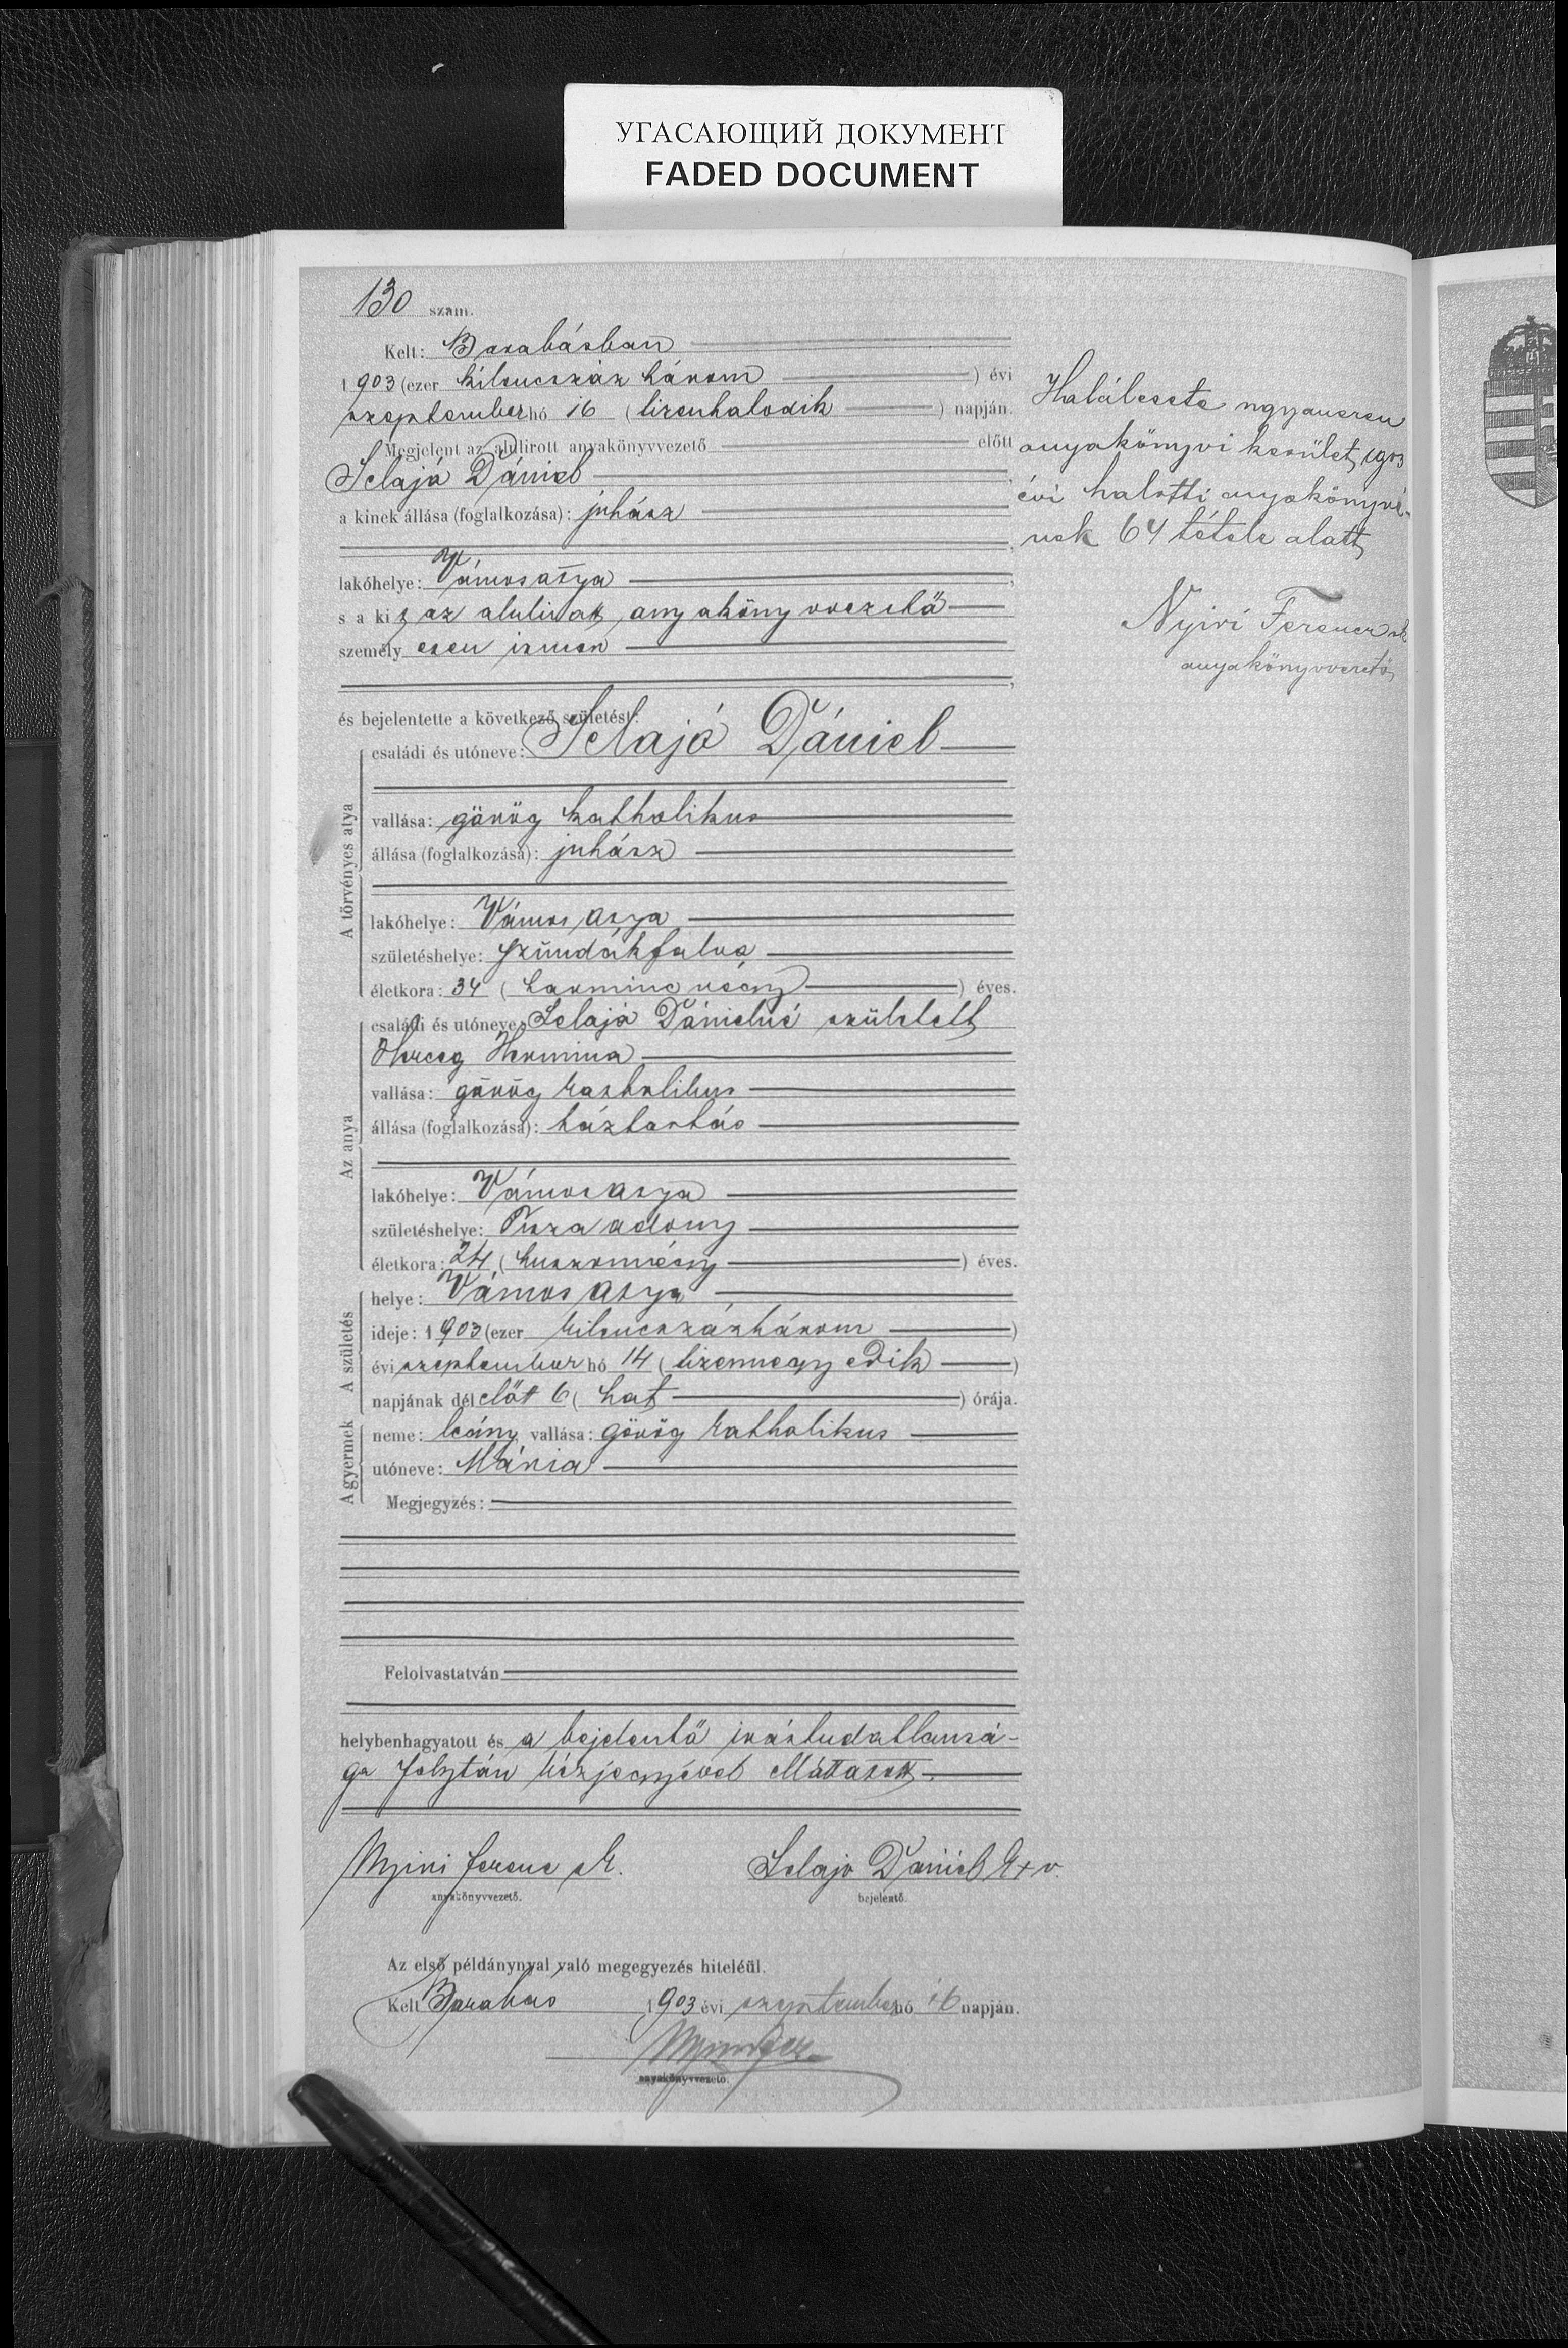 УГАСАЮЩИЙ ДОКУМЕНТ
FADED DOCUMENT
130 szám.
Kelt: Barabásban
1903 (ezer kilencszáz három) évi
szeptember hó 16 (tizenhatodik) napján.
Megjelent az alulirott anyakönyvvezető előtt
Selajá Dániel
a kinek állása (foglalkozása): juhász
lakóhelye: Vámosatya
s a kit az alulirott anyakönyvvezető
személyesen ismer
és bejelentette a következő születést:
A törvényes atya
családi és utóneve: Selajá Dániel
vallása: görög katholikus
állása (foglalkozása): juhász
lakóhelye: Vámos atya
születéshelye:
életkora: 34 (harminc négy) éves.
Az anya
családi és utóneve: Selajá Dánielné született
Herceg Hermina
vallása: görög katholikus
állása (foglalkozása): háztartás
lakóhelye: Vámosatya
születéshelye: Tiszaadony
életkora: 24 (huszonnégy) éves.
A születés
helye: Vámos atya
ideje: 1903 (ezer kilencszázhárom)
évi szeptember hó 14 (tizennegyedik)
napjának délelőt 6 (hat) órája.
A gyermek
neme: leány vallása: görög katholikus
utóneve: Mária
Megjegyzés:
Felolvastatván
helybenhagyatott és a bejelentő irástudatlansá-
ga folytán kézjegyével elláttatott.
Nyiri Ferenc sk.
anyakönyvvezető.
Selajo Dániel k+v.
bejelentő.
Az első példánynyal való megegyezés hiteléül.
Kelt Barabás 1903 évi szeptember hó 16 napján.
anyakönyvvezető.
Halálesete ugyanezen
anyakönyvi kerület 1903
évi halotti anyakönyvé-
nek 64 tétele alatt
Nyiri Ferencz sk
anyakönyvvezető